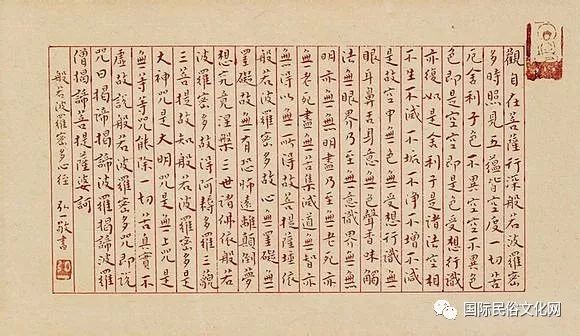 觀自在菩薩行深般若波羅蜜
多時照見五蘊皆空度一切苦
厄舍利子色不異空空不異色
色即是空空即是色受想行識
亦復如是舍利子是諸法空相
不生不滅不垢不淨不增不減
是故空中無色無受想行識無
眼耳鼻舌身意無色聲香味觸
法無眼界乃至無意識界無無
明亦無無明盡乃至無老死亦
無老死盡無苦集滅道無智亦
無得以無所得故菩提薩埵依
般若波羅蜜多故心無罣礙無
罣礙故無有恐怖遠離顛倒夢
想究竟涅槃三世諸佛依般若
波羅蜜多故得阿耨多羅三藐
三菩提故知般若波羅蜜多是
大神咒是大明咒是無上咒是
無等等咒能除一切苦真實不
虛故說般若波羅蜜多咒即說
咒曰揭諦揭諦波羅揭諦波羅
僧揭諦菩提薩婆訶
般若波羅蜜多心經 弘一敬書
国际民俗文化网